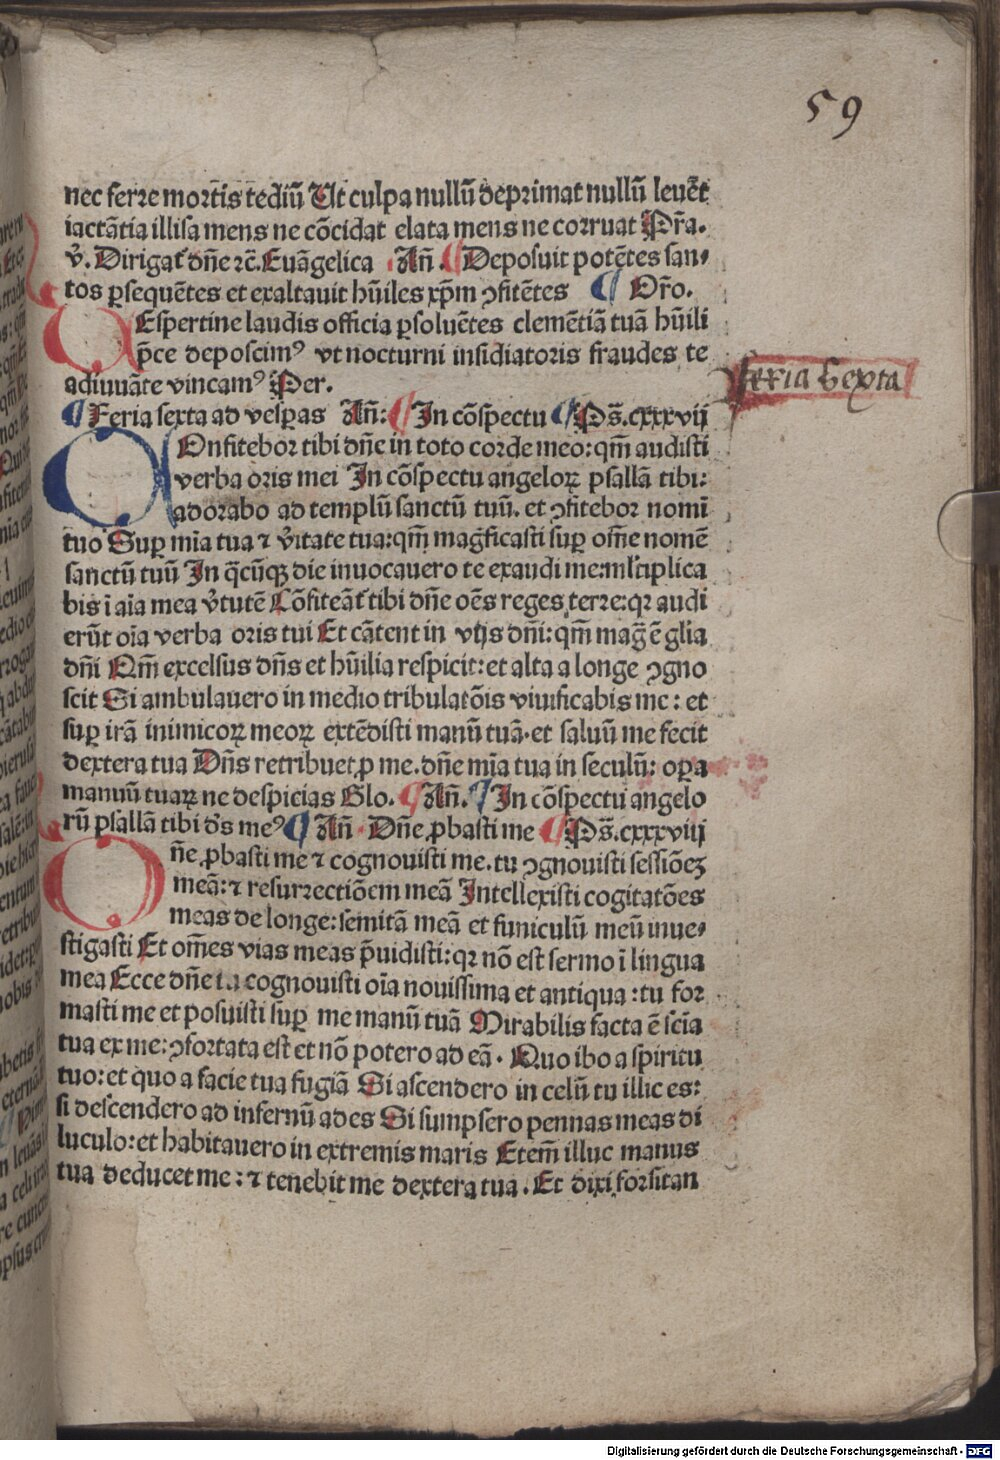 59
nec ferre mortis tediū Ut culpa nullū deprimat nullū leuēt
iactātia illisa mens ne cōcidat elata mens ne corruat Pr̄a.
v̄. Dirigat᷑ dn̄e ⁊c̄. Euāgelica Añ. ¶ Deposuit potētes san⸗
tos ꝑsequētes et exaltauit hūiles xp̄m ꝯfitētes ¶ Or̄o.
Espertine laudis officia ꝑsoluētes clemētiā tuā hūili
p̄ce deposcimꝰ vt nocturni insidiatoris fraudes te
adiuuāte vincamꝰ Per.
feria Sexta
¶ Feria sexta ad vesꝑas Añ: ¶ In cōspectu ¶ Ps̄. cxxxvij
Onfitebor tibi dn̄e in toto corde meo: qm̄ audisti
verba oris mei In cōspectu angeloꝝ psallā tibi:
adorabo ad templū sanctū tuū. et ꝯfitebor nomi
tuo Suꝑ mīa tua ⁊ v̄itate tua: qm̄ magficasti suꝑ om̄e nomē
sanctū tuū In q̄cūqꝫ die inuocauero te exaudi me: ml̓tiplica
bis ī aīa mea v̓tutē Cōfiteāt᷑ tibi dn̄e oēs reges terre: qꝛ audi
erūt oīa verba oris tui Et cātent in vijs dn̄i: qm̄ maḡ ē glīa
dn̄i Qm̄ excelsus dn̄s et hūilia respicit: et alta a longe ꝯgno
scit Si ambulauero in medio tribulatōis viuificabis me: et
suꝑ irā inimicoꝝ meoꝝ extēdisti manū tuā. et saluū me fecit
dextera tua Dn̄s retribuet ꝓ me. dn̄e mīa tua in seculū: oꝑa
manuū tuaꝝ ne despicias Glo. ¶ Añ. ¶ In cōspectu angelo
rū psallā tibi ds̄ meꝰ ¶ Añ Dn̄e ꝓbasti me ¶ Ps̄. cxxxviij
n̄e ꝓbasti me ⁊ cognouisti me. tu ꝯgnouisti sessiōeꝫ
meā: ⁊ resurrectiōem meā Intellexisti cogitatōes
meas de longe: semitā meā et funiculū meū inue⸗
stigasti Et om̄es vias meas p̄uidisti: qꝛ nō est sermo ī lingua
mea Ecce dn̄e tu cognouisti oīa nouissima et antiqua: tu for
masti me et posuisti suꝑ me manū tuā Mirabilis facta ē scīa
tua ex me: ꝯfortata est et nō potero ad eā. Quo ibo a spiritu
tuo: et quo a facie tua fugiā Si ascendero in celū tu illic es:
si descendero ad infernū ades Si sumpsero pennas meas di
luculo: et habitauero in extremis maris Etem̄ illuc manus
tua deducet me: ⁊ tenebit me dextera tua. Et dixi forsitan
Digitalisierung gefördert durch die Deutsche Forschungsgemeinschaft - DFG